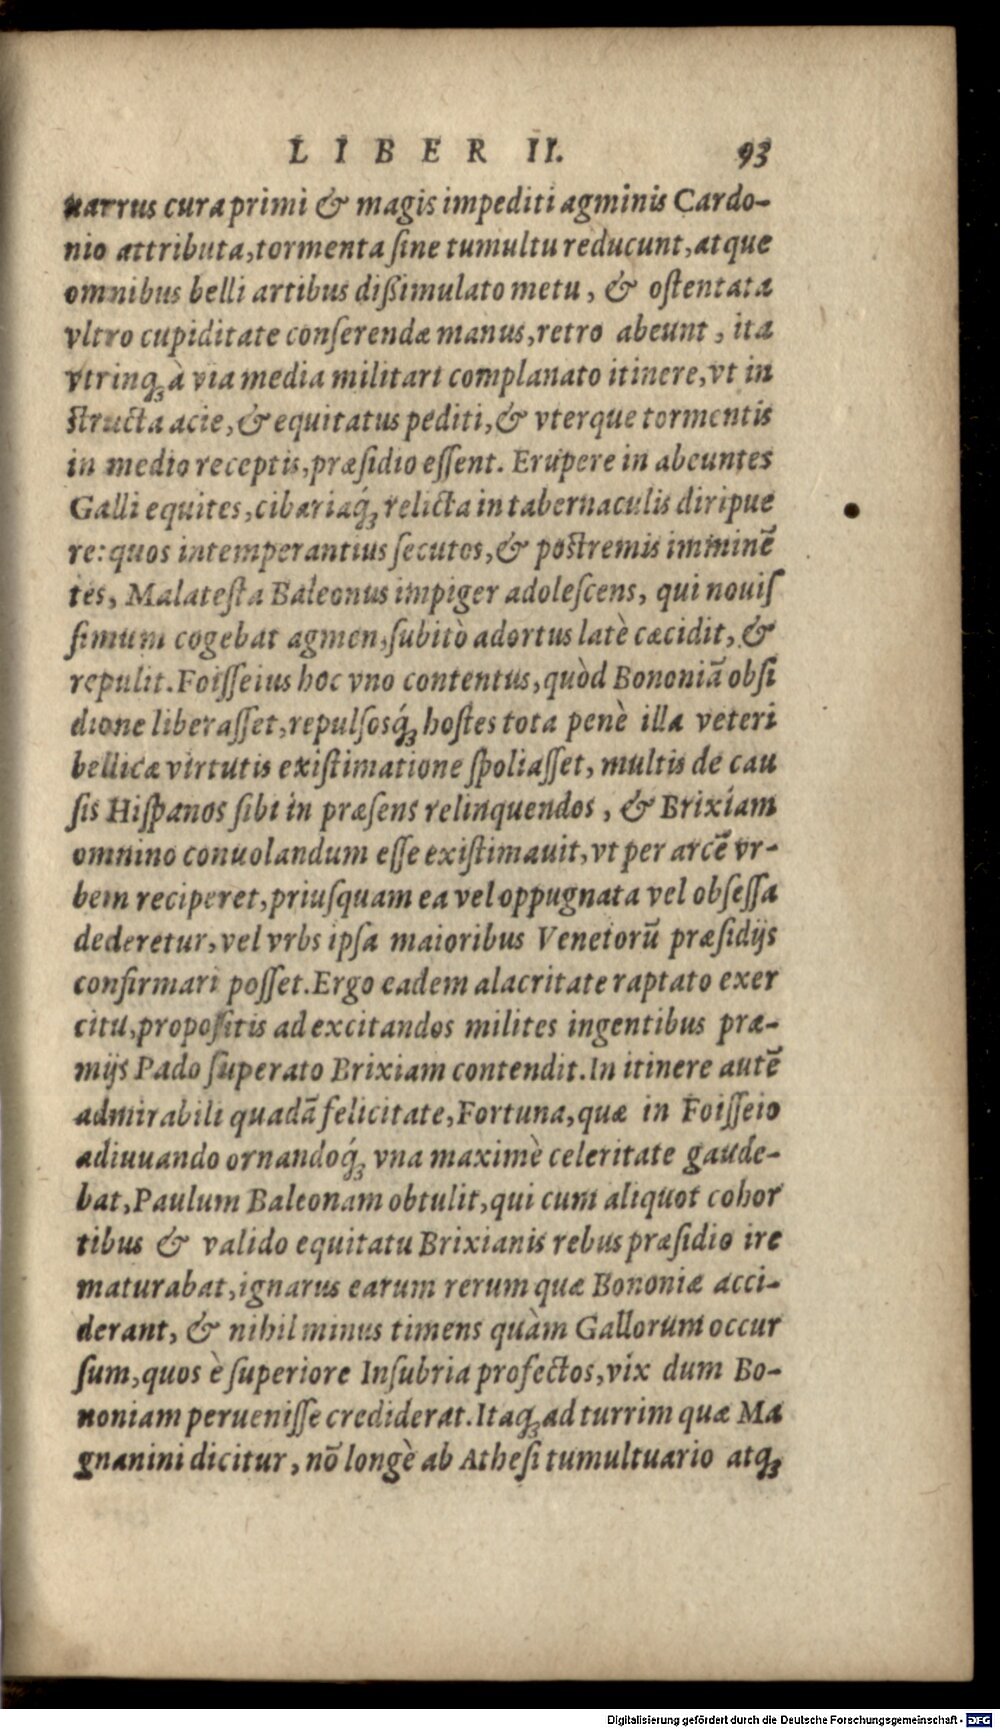 LIBER II. 93
uarrus cura primi & magis impediti agminis Cardo-
nio attributa, tormenta ſine tumultu reducunt, atque
omnibus belli artibus dißimulato metu, & oſtentata
vltro cupiditate conſerendæ manus, retro abeunt, ita
vtrinq́ꝫ à via media militari complanato itinere, vt in
ſtructa acie, & equitatus pediti, & vterque tormentis
in medio receptis, præſidio eſſent. Erupere in abeuntes
Galli equites, cibariaq́ꝫ relicta in tabernaculis diripue
re: quos intemperantius ſecutos, & poſtremis imminẽ
tes, Malateſta Baleonus impiger adoleſcens, qui nouiſ
ſimum cogebat agmen, ſubitò adortus latè cæcidit, &
repulit. Foiſſeius hoc vno contentus, quòd Bononiã obſi
dione liberaſſet, repulſosq́ꝫ hoſtes tota penè illa veteri
bellicæ virtutis exiſtimatione ſpoliaſſet, multis de cau
ſis Hiſpanos ſibi in præſens relinquendos, & Brixiam
omnino conuolandum eſſe exiſtimauit, vt per arcẽ vr-
bem reciperet, priuſquam ea vel oppugnata vel obſeſſa
dederetur, vel vrbs ipſa maioribus Venetorũ præſidijs
confirmari poſſet. Ergo eadem alacritate raptato exer
citu, propoſitis ad excitandos milites ingentibus præ-
mijs Pado ſuperato Brixiam contendit. In itinere autẽ
admirabili quadã felicitate, Fortuna, quæ in Foiſſeio
adiuuando ornandoq́ꝫ vna maximè celeritate gaude-
bat, Paulum Baleonam obtulit, qui cum aliquot cohor
tibus & valido equitatu Brixianis rebus præſidio ire
maturabat, ignarus earum rerum quæ Bononiæ acci-
derant, & nihil minus timens quàm Gallorum occur
ſum, quos è ſuperiore Inſubria profectos, vix dum Bo-
noniam perueniſſe crediderat. Itaqꝫ ad turrim quæ Ma
gnanini dicitur, nõ longè ab Atheſi tumultuario atqꝫ
Digitalisierung gefördert durch die Deutsche Forschungsgemeinschaft - DFG